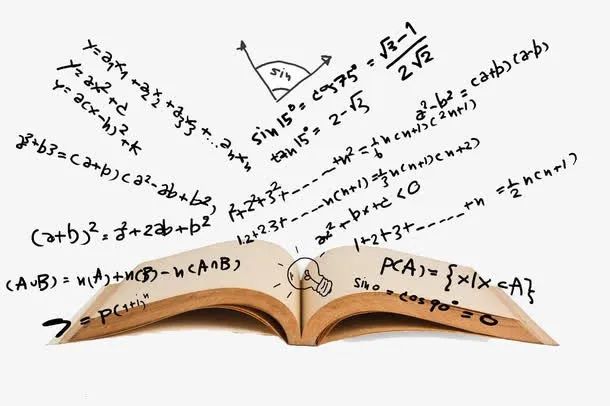 y = a₁x₁ + a₂x₂ + a₃x₃ + ... aₙxₙ
y = ax² + c
y = a(x-h)² + k
a³+b³ = (a+b)(a²-ab+b²)
(a+b)² = a²+2ab+b²
(A∪B) = n(A)+n(B)-n(A∩B)
= P(1+i)ⁿ
sin
sin15° = cos75° = √3-1 / 2√2
tan15° = 2-√3
a²-b² = (a+b)(a-b)
1²+2²+3²+ ...... +n² = 1/6 n(n+1)(2n+1)
1.2+2.3+ ...... n(n+1) = 1/3 n(n+1)(n+2)
ax²+bx+c<0
1+2+3+ ...... +n = 1/2 n(n+1)
P(A) = {x|x⊂A}
sin0 = cos90° = 0